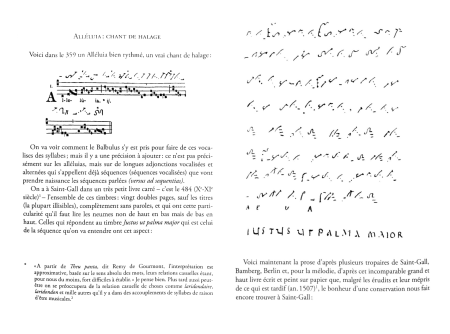 ALLÉLUIA : CHANT DE HALAGE
Voici dans le 359 un Alléluia bien rythmé, un vrai chant de halage :
On va voir comment le Balbulus s'y est pris pour faire de ces voca-
lises des syllabes ; mais il y a une précision à ajouter : ce n'est pas préci-
sément sur les alléluias, mais sur de longues adjonctions vocalisées et
alternées qui s'appellent déjà séquences (séquences vocalisées) que vont
prendre naissance les séquences parlées
On a à Saint-Gall dans un très petit livre carré – c'est le 484 (Xe-XIe
siècle) – l'ensemble de ces timbres : vingt doubles pages, sauf les titres
(la plupart illisibles), complètement sans paroles, et qui ont cette parti-
cularité qu'il faut lire les neumes non de haut en bas mais de bas en
haut. Celles qui répondent au timbre Justus ut palma major qui est celui
de la séquence qu'on va entendre ont cet aspect :
« A partir de Theu pansa, dit Remy de Gourmont, l'interprétation est
approximative, basée sur le sens absolu des mots, leurs relations cassuelles étant,
pour nous du moins, fort difficiles à établir. » Je pense bien. Plus sard aussi peut-
être on se préoccupera de la relation casuelle de choses comme
et mille autres qu'il y a dans des accouplements de syllabes de raison
d'êtres musicales.
A E U A
IUSTUS UT PALMA MAIOR
Voici maintenant la prose d'après plusieurs tropaires de Saint-Gall,
Bamberg, Berlin et, pour la mélodie, d'après cet incomparable grand et
haut livre écrit et peint sur papier que, malgré les érudits et leur mépris
de ce qui est tardif (an. 1507), le bonheur d'une conservation nous fait
encore trouver à Saint-Gall :